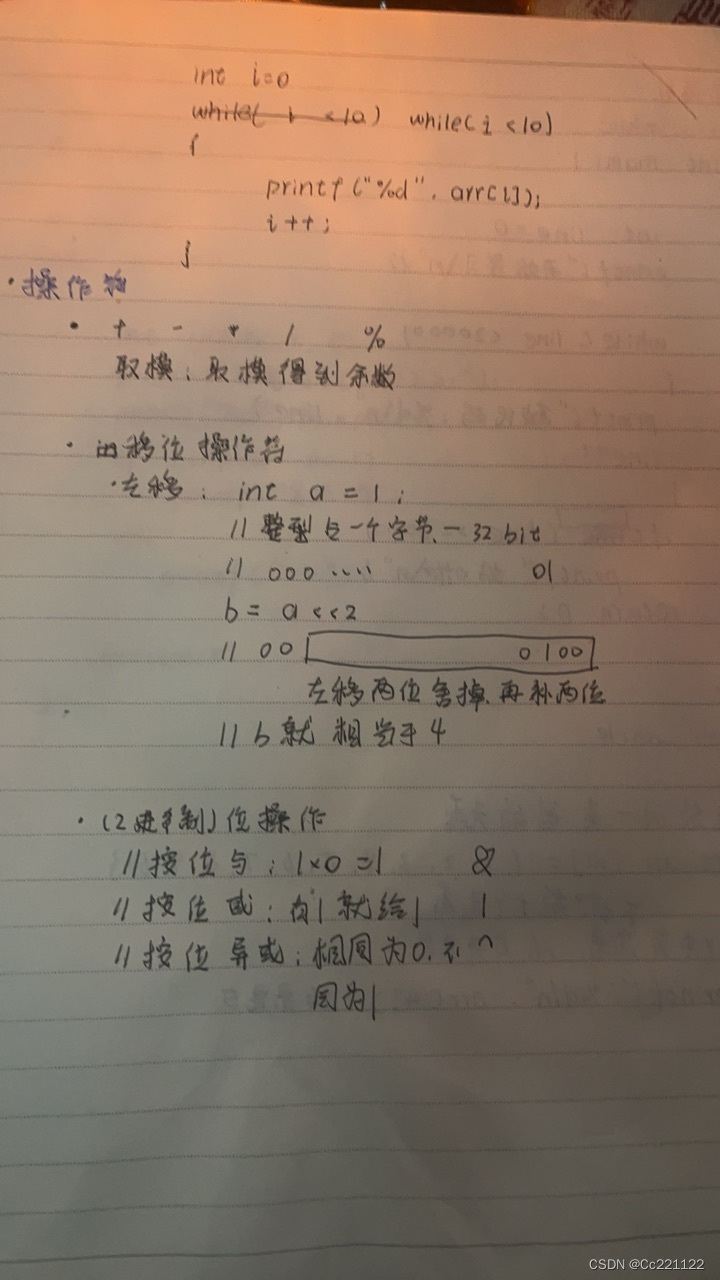 int i=0
while( i <10) while(i <10)
{
printf("%d", arr[i]);
i++;
}
·操作符
· + - * / %
取模：取模得到余数
· 移位操作符
·左移： int a = 1;
// 整型占一个字节 — 32 bit
// 000 ····· 01
b = a <<2
// 00 0100
左移两位舍掉,再补两位
// b 就相当于4
· (2进制)位操作
// 按位与：1×0=1 &
// 按位或：有1就给1 |
// 按位异或：相同为0,不 ^
同为1
CSDN @Cc221122